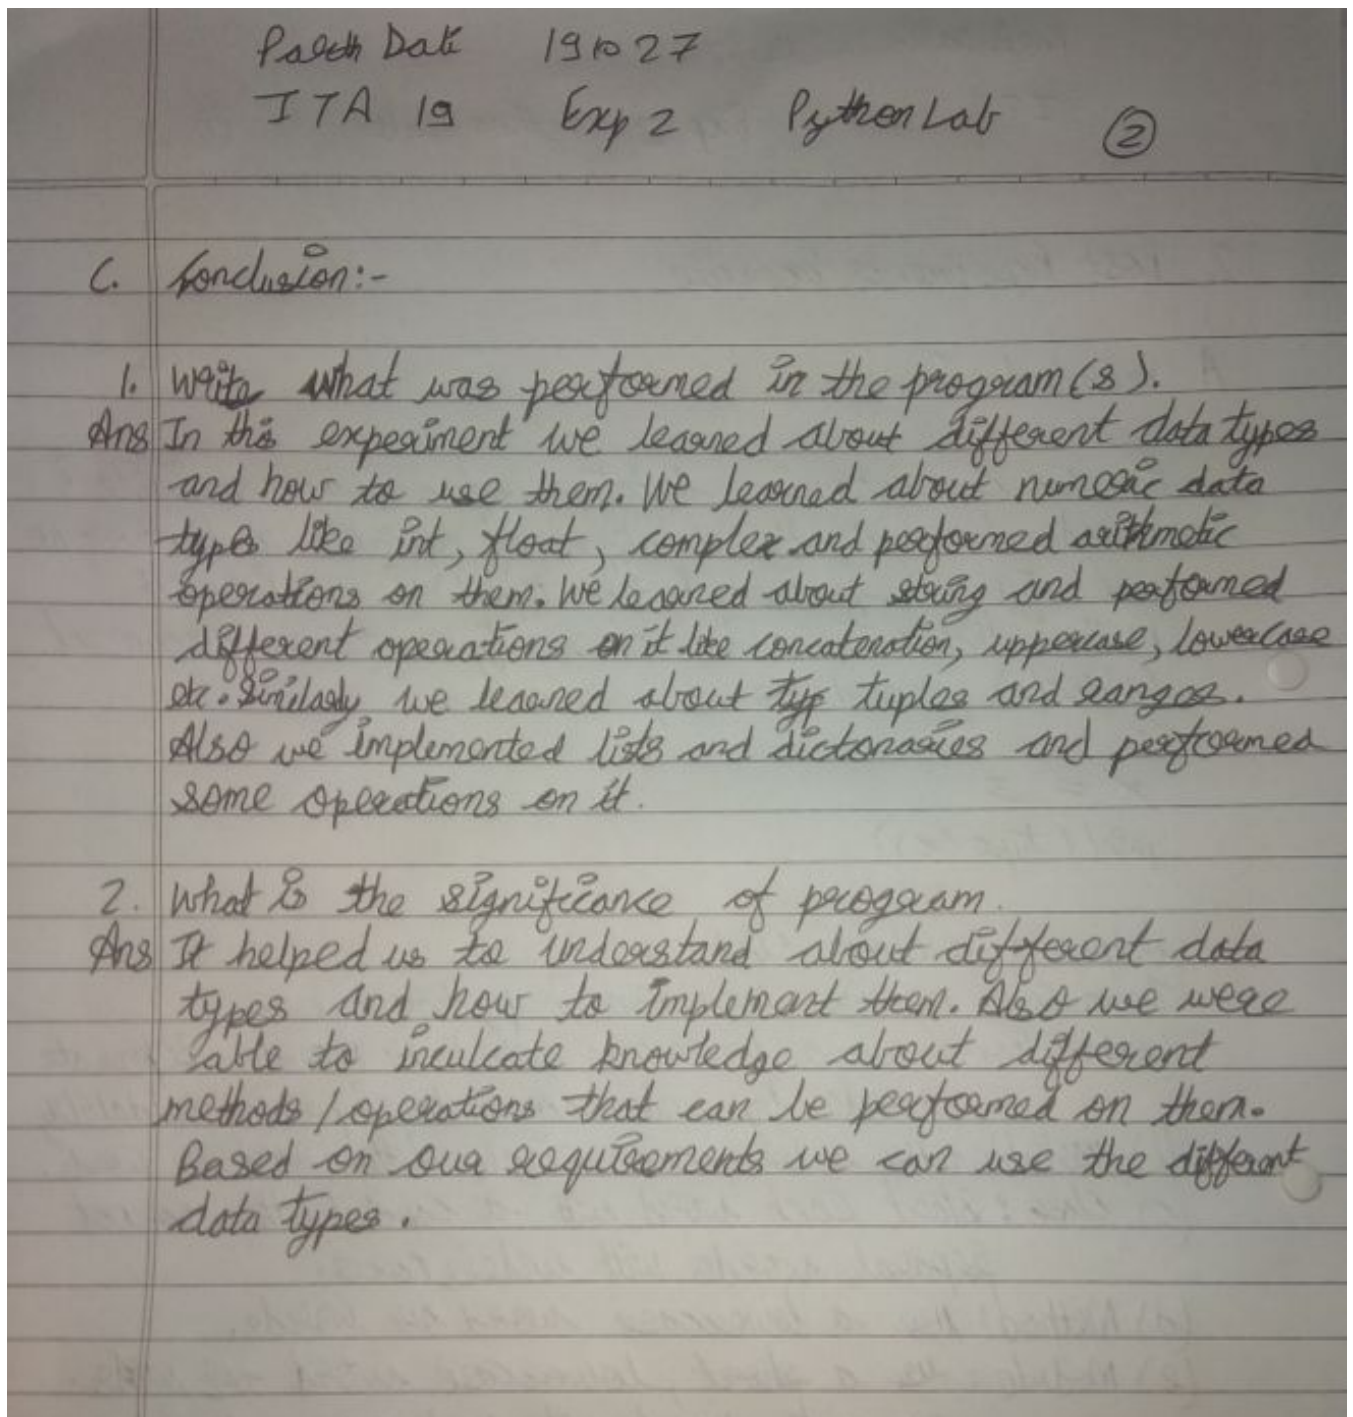 Parth Date 191027
ITA 19 Exp 2 Python Lab 2
C. Conclusion:-
1. Write what was performed in the program(s).
Ans In this experiment we learned about different data types
and how to use them. We learned about numeric data
types like int, float, complex and performed arithmetic
operations on them. We learned about string and performed
different operations on it like concatenation, uppercase, lowercase
etc. Similarly we learned about tuples and ranges.
Also we implemented lists and dictonaries and performed
some operations on it.
2. What is the significance of program.
Ans It helped us to understand about different data
types and how to implement them. Also we were
able to inculcate knowledge about different
methods/operations that can be performed on them.
Based on our requirements we can use the different
data types.